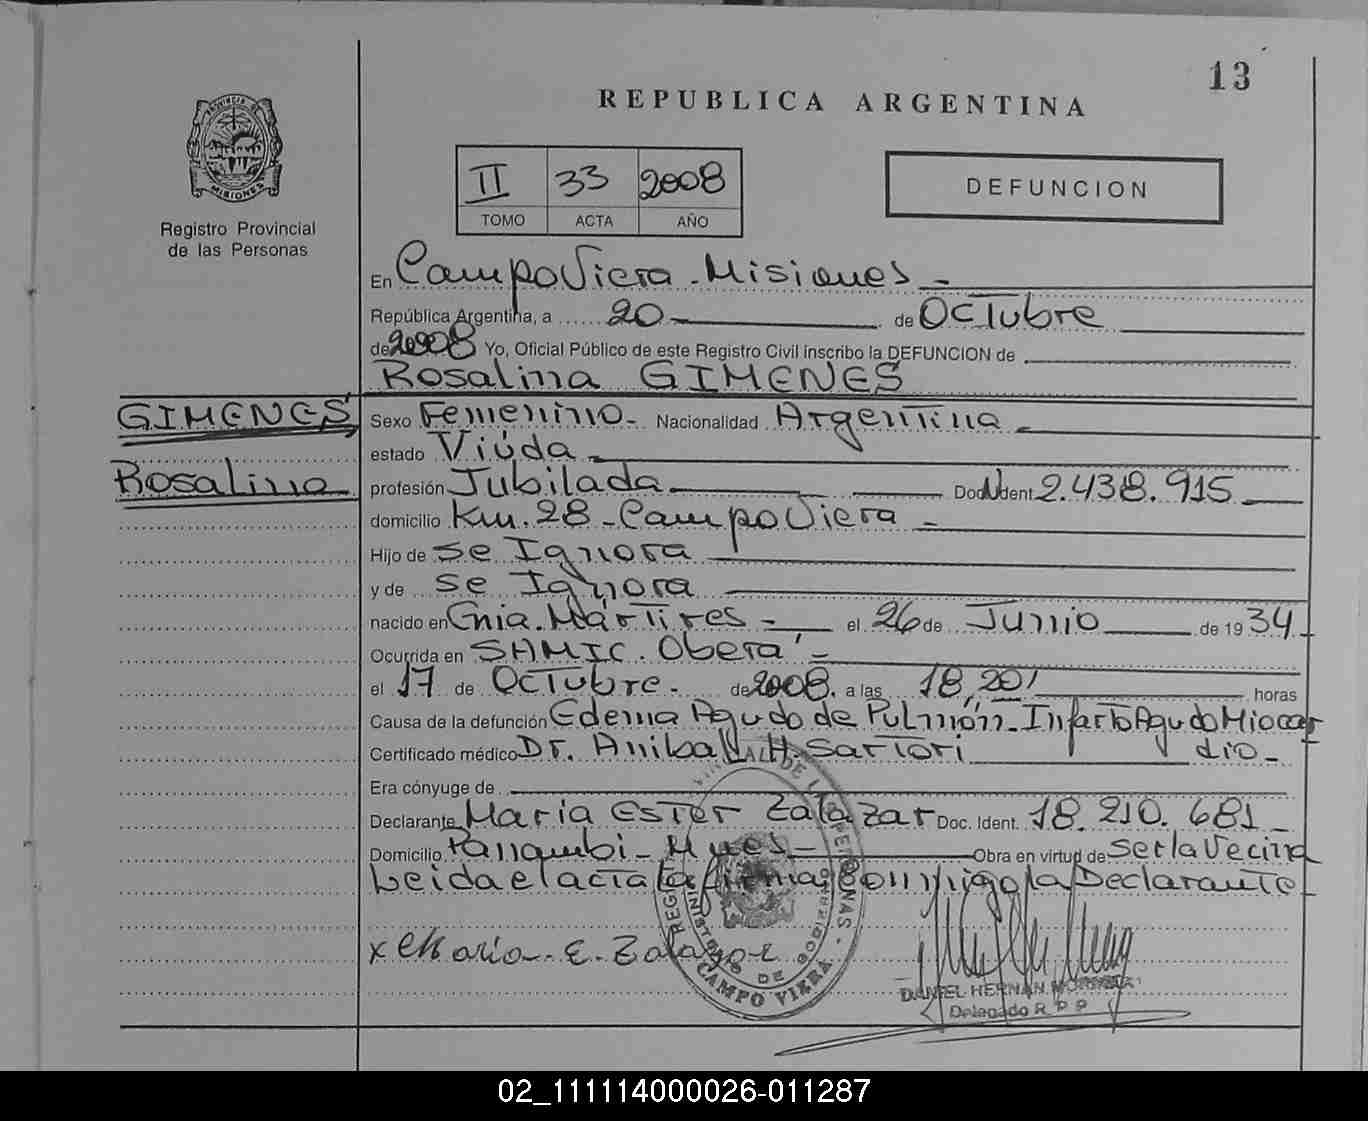 13
REPUBLICA ARGENTINA
PROVINCIA DE
MISIONES
Registro Provincial
de las Personas
II 33 2008
TOMO ACTA AÑO
DEFUNCION
En Campo Viera - Misiones -
República Argentina, a 20 de Octubre
de 2008 Yo, Oficial Público de este Registro Civil inscribo la DEFUNCION de
Rosalina GIMENES
GIMENES
Rosalina
Sexo Femenino - Nacionalidad Argentina -
estado Viúda -
profesión Jubilada Doc. Ident 2.438.915
domicilio Km. 28 - Campo Viera -
Hijo de se Ignora
y de se Ignora
nacido en Cnia. Mártires - el 26 de Junio de 1934
Ocurrida en SAMIC. Oberá -
el 17 de Octubre. de 2008. a las 18,20 horas
Causa de la defunción Edema Agudo de Pulmón - Infarto Agudo Miocar
Certificado médico Dr. Anibal H. Sartori dio -
Era cónyuge de
Declarante María Ester Zalazar Doc. Ident. 18.210.681 -
Domicilio Panambi - Mnes - Obra en virtud de ser la Vecina
Leida el acta la firma Conmigo la Declarante -
x Maria. E. Zalazar
CAMPO VIERA
DANIEL HERNAN
Delegado R P P
02_111114000026-011287